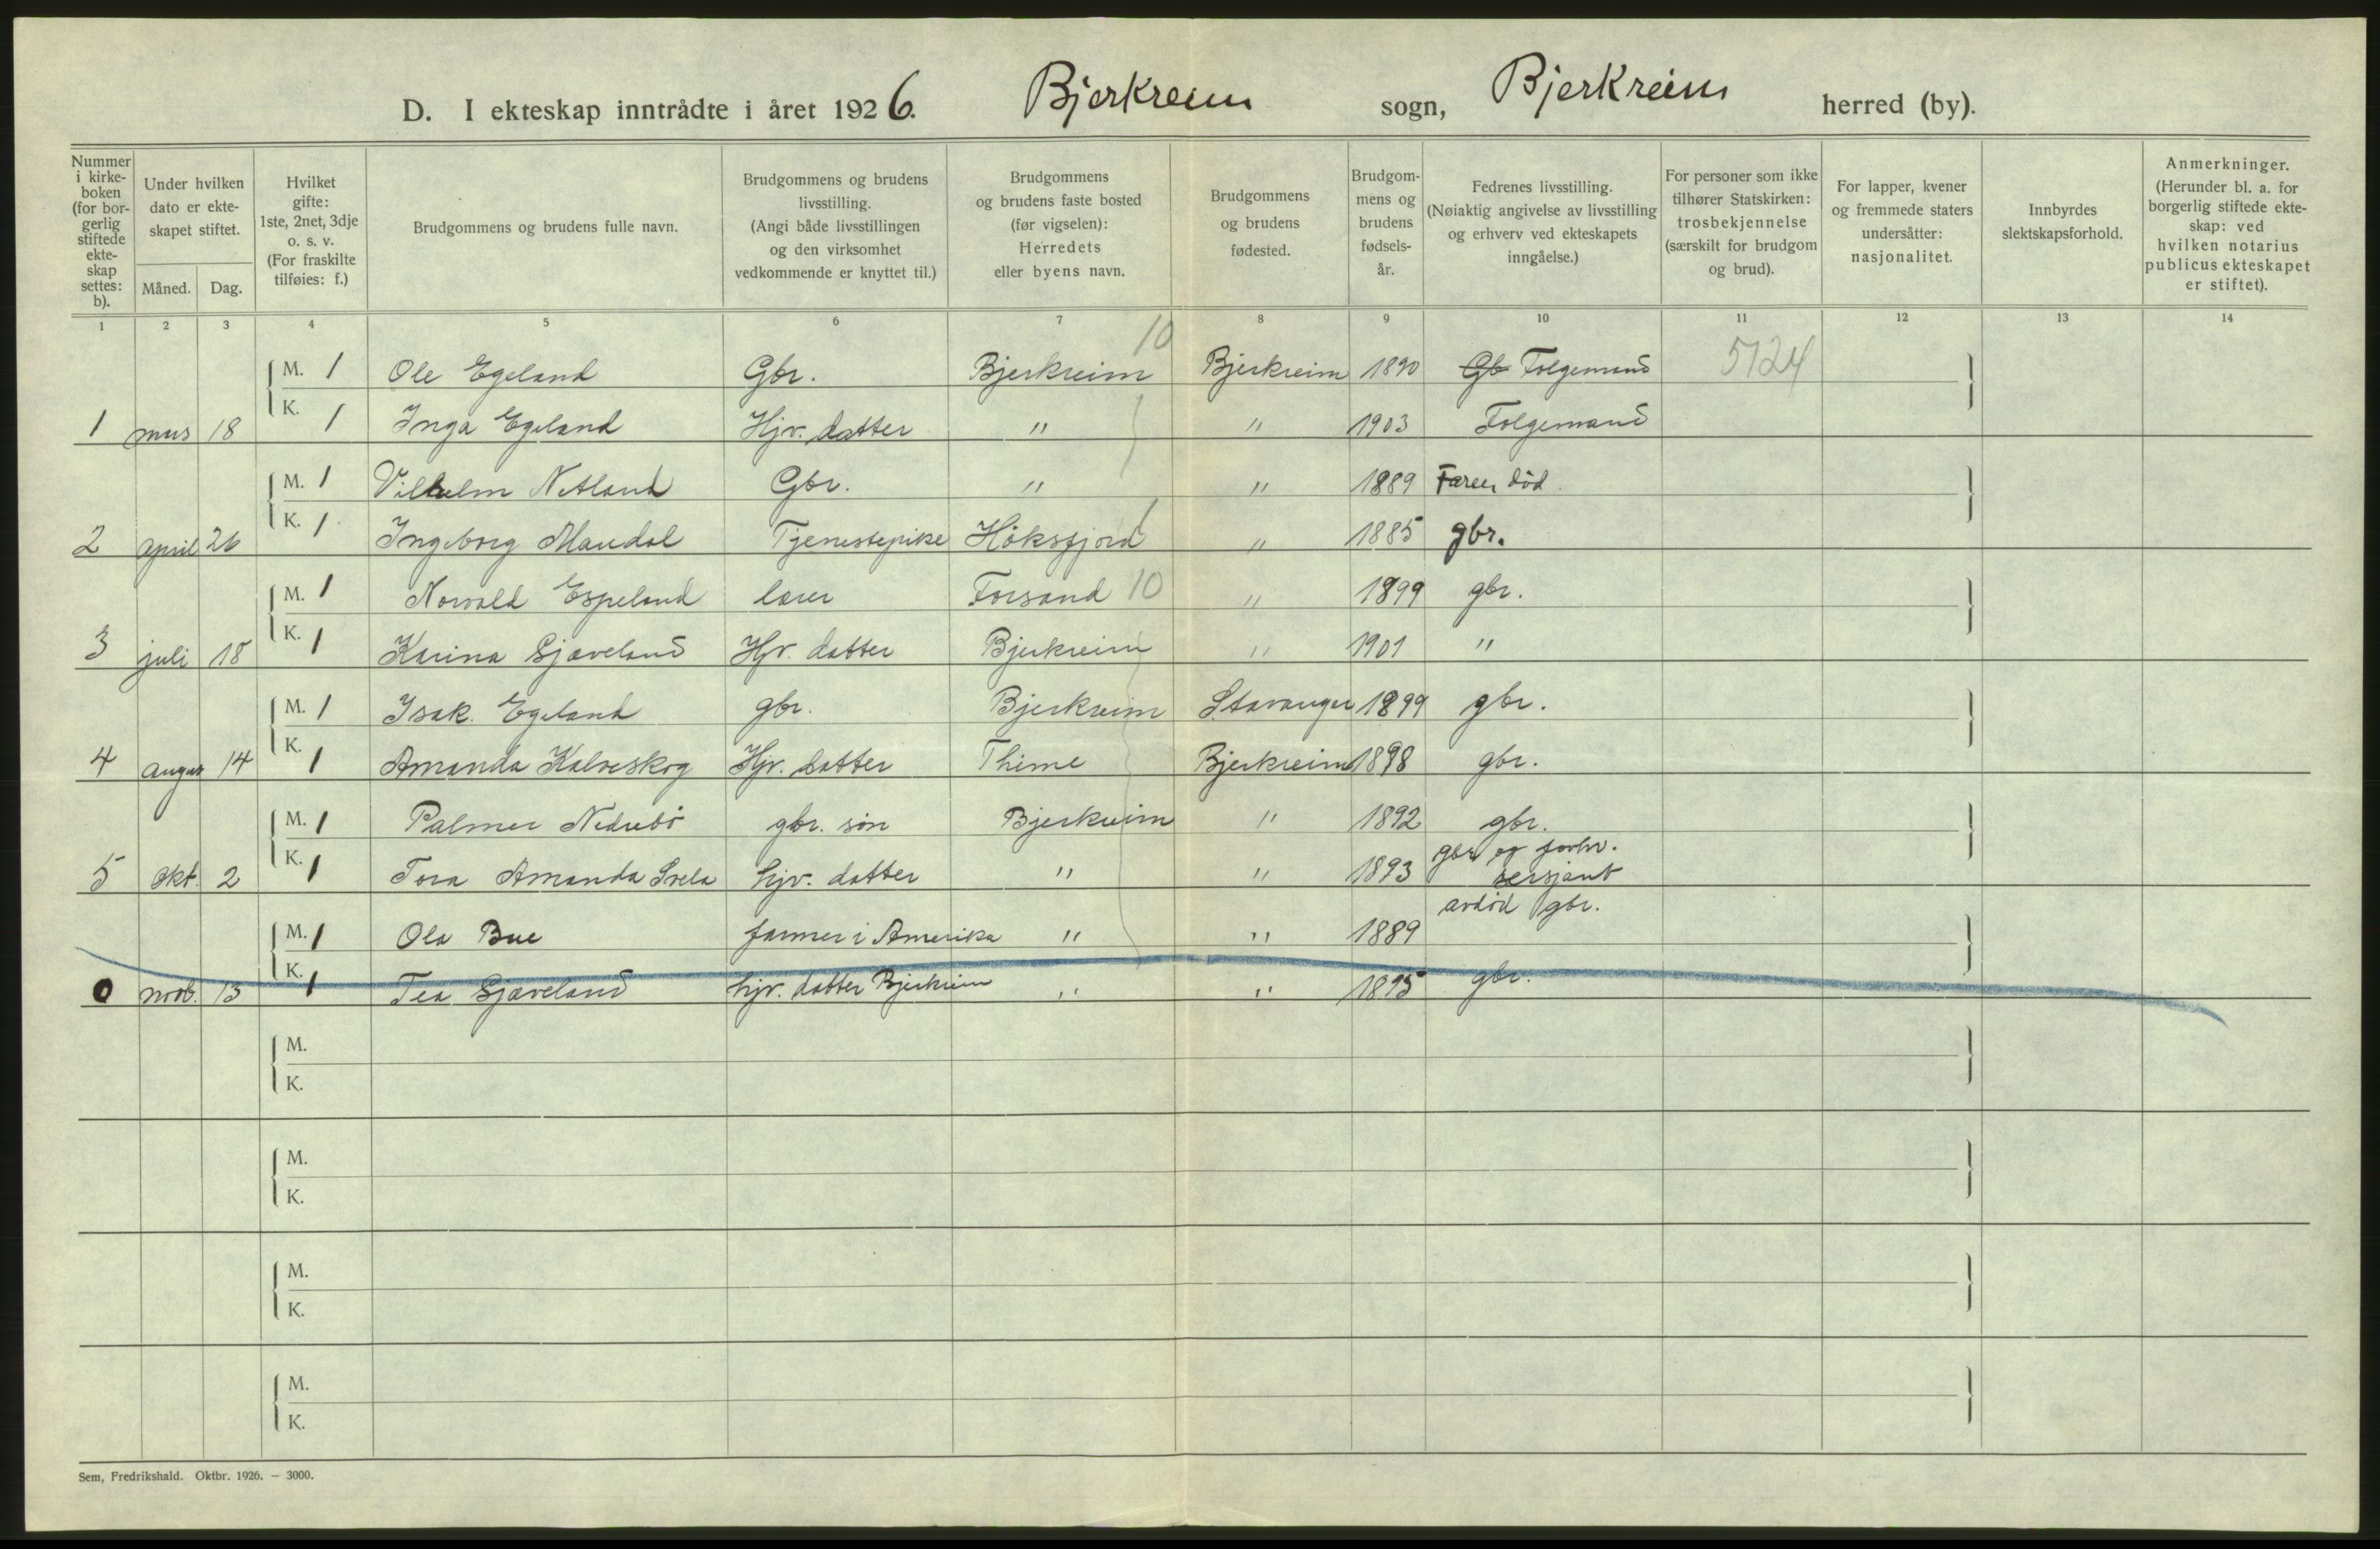 D. I ekteskap inntrådte i året 1926. Bjerkreim sogn, Bjerkreim herred (by).
Nummer i kirke-boken (for bor-gerlig stiftede ekte-skap settes: b).
Under hvilken dato er ekte-skapet stiftet.
Måned. Dag.
Hvilket gifte: 1ste, 2net, 3dje o. s. v. (For fraskilte tilføies: f.)
Brudgommens og brudens fulle navn.
Brudgommens og brudens livsstilling. (Angi både livsstillingen og den virksomhet vedkommende er knyttet til.)
Brudgommens og brudens faste bosted (før vigselen): Herredets eller byens navn.
Brudgommens og brudens fødested.
Brudgom-mens og brudens fødsels-år.
Fedrenes livsstilling. (Nøiaktig angivelse av livsstilling og erhverv ved ekteskapets inngåelse.)
For personer som ikke tilhører Statskirken: trosbekjennelse (særskilt for brudgom og brud).
For lapper, kvener og fremmede staters undersåtter: nasjonalitet.
Innbyrdes slektskapsforhold.
Anmerkninger. (Herunder bl. a. for borgerlig stiftede ekte-skap: ved hvilken notarius publicus ekteskapet er stiftet).
1 2 3 4 5 6 7 8 9 10 11 12 13 14
10
M. 1 Ole Egeland Gbr. Bjerkreim Bjerkreim 1890 Gb Folgemand 5124
1 mars 18 K. 1 Inga Egeland Hjv. datter " " 1903 Folgemand
M. 1 Vilhelm Netland Gbr. " " 1889 Faren död.
2 april 26 K. 1 Ingeborg Maudal Tjenestepike Höksfjord " 1885 gbr.
M. 1 Norvald Espeland lærer Forsand 10 " 1899 gbr.
3 juli 18 K. 1 Karina Gjæveland Hjv. datter Bjerkreim " 1901 "
M. 1 Isak Egeland gbr. Bjerkreim Stavanger 1899 gbr.
4 14 K. 1 Amanda Kalveskog Hjv. datter Thime Bjerkreim 1898 gbr.
M. 1 Palmer Nedrebö gbr. søn Bjerkreim " 1892 gbr.
5 okt. 2 K. 1 Tora Amanda Svela hjv. datter " " 1893 gbr og forhv. sersjant
M. 1 Ola Bue farmer i Amerika " " 1889 avdöd gbr.
novb. 13 K. 1 Tea Gjæveland hjv. datter Bjerkreim " " 1895 gbr.
M.
K.
M.
K.
M.
K.
M.
K.
Sem, Fredrikshald. Oktbr. 1926. — 3000.